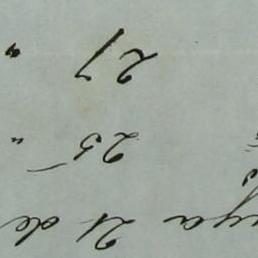 ya 21 de
25 "
27 "